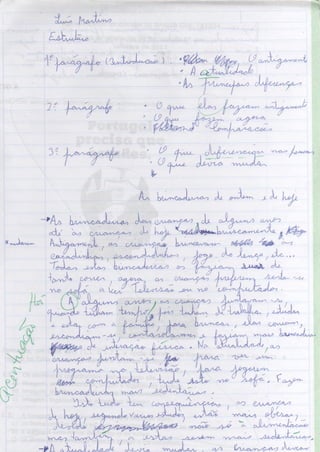 Luís Martins
Estrutura
1º parágrafo (Introdução) • O antigamente
• A actualidade
• As principais diferenças
2º parágrafo • O que eles faziam antigamente
• O que fazem agora
comparação
3º parágrafo • O que diferenciou nas
• O que devia mudar
As brincadeiras de ontem e de hoje
As brincadeiras das crianças, de alguns anos
até às crianças de hoje mudaram bruscamente.
Antigamente, as crianças brincavam às
caçadinhas, escondidinhas, jogo do lenço, etc...
Todas estas brincadeiras os faziam suar de
tanto correr, agora as crianças preferem sentar-se
no sofá a ver televisão ou no computador.
Há
A alguns anos, as crianças juntavam-se
quando tinham tempo, pois tinham de trabalhar, estudar
e estar com a família, para brincar, elas corriam,
escondiam-se
de interação física. Na atualidade, as
crianças juntam-se para ver um
programa na televisão, para jogarem
computador, tudo isto no sofá. Fazem
brincadeiras mais sedentárias.
Isto tudo tem consequências, as crianças
de hoje, segundo vários estudos, estão mais obesas,
não só à alimentação
mas também, a estas serem mais sedentárias.
A atualidade devia mudar, as crianças devem
acentuação